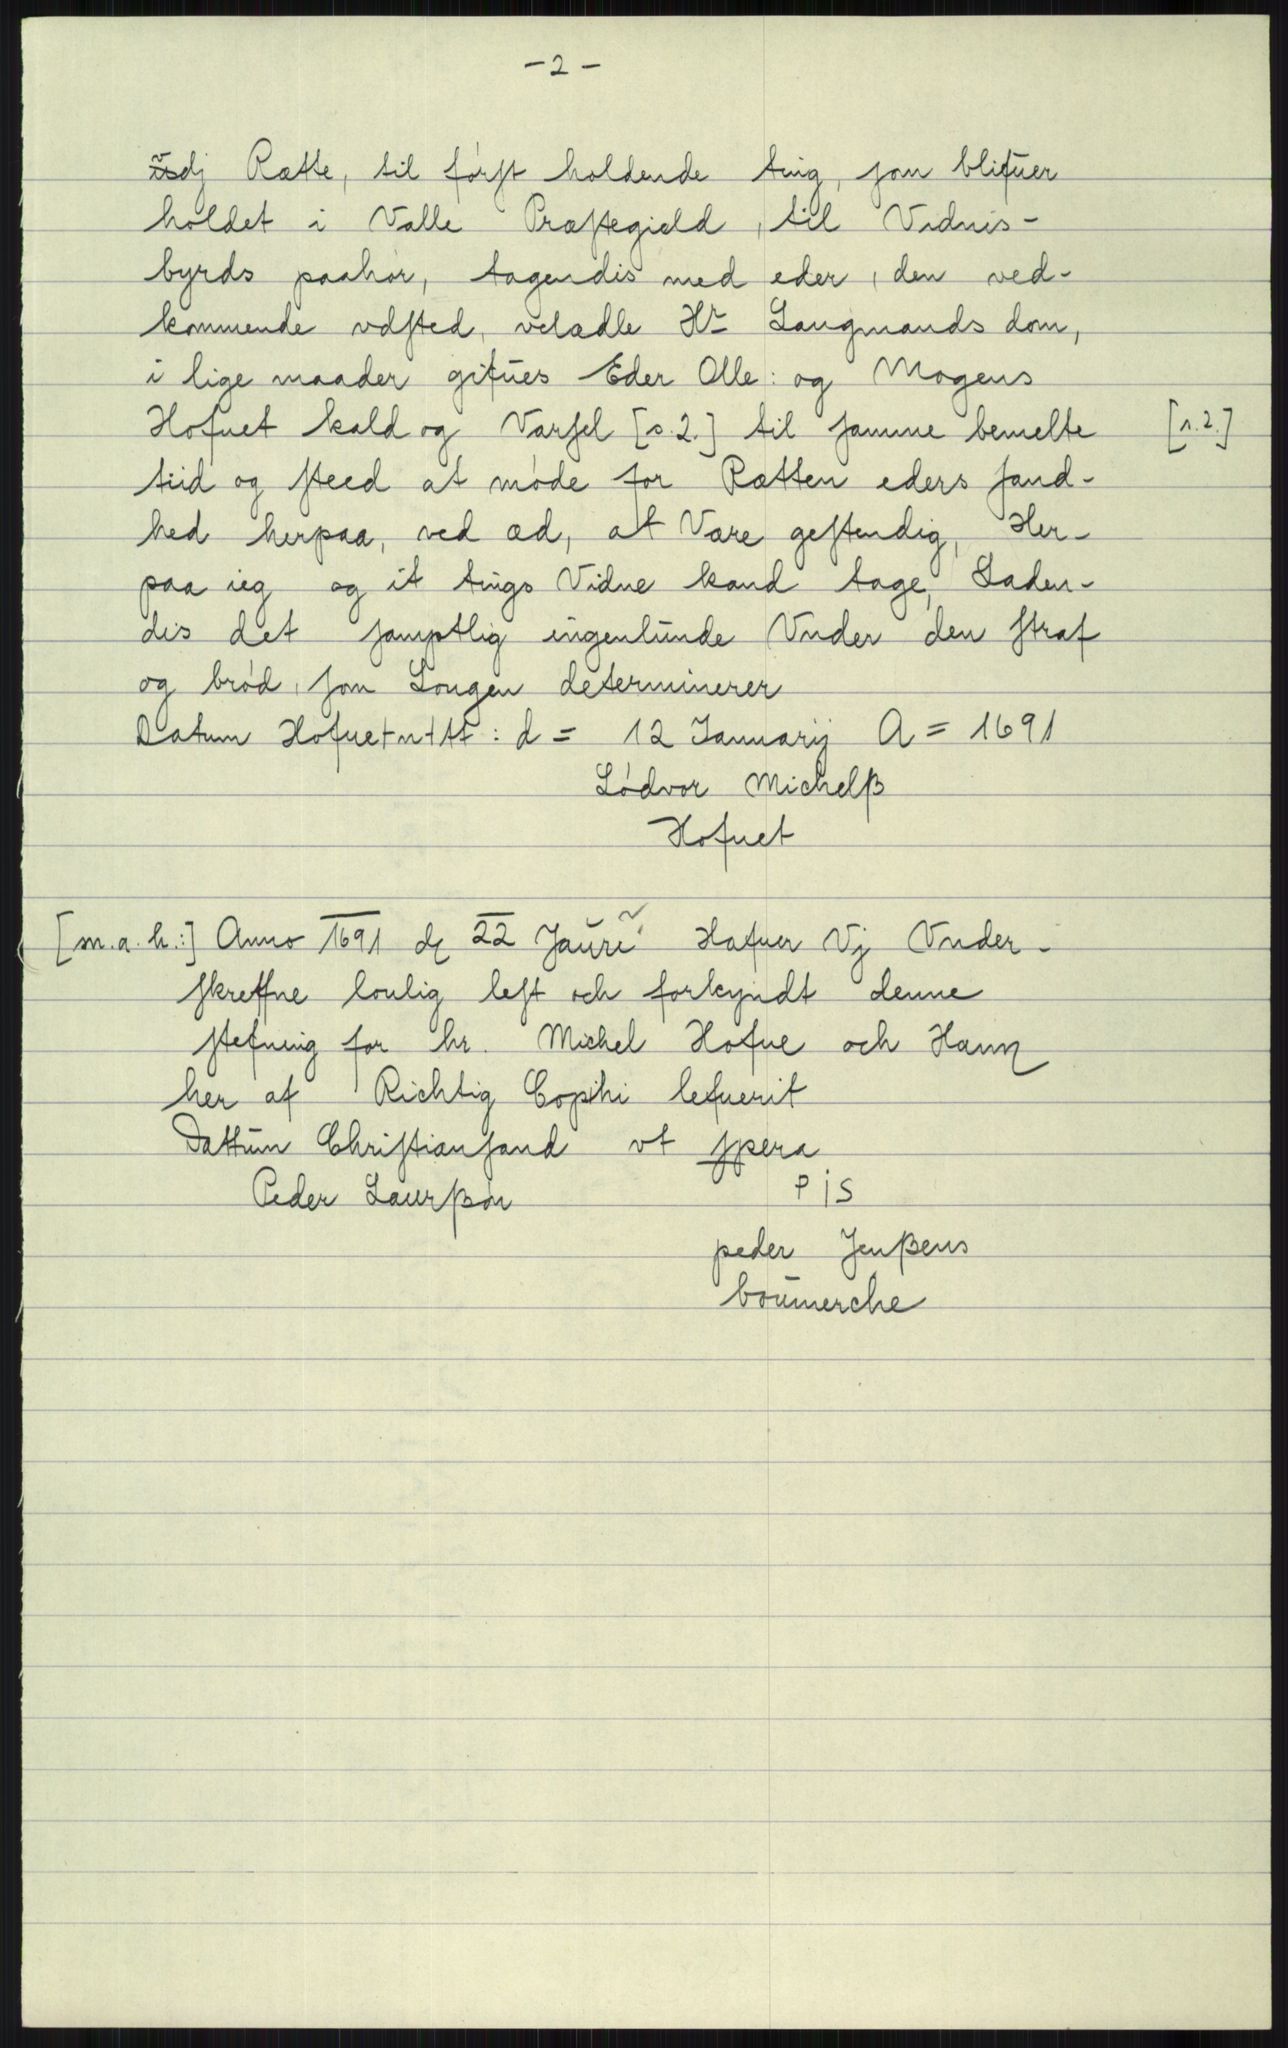 - 2 -
udj Rætte, til først holdende ting, som blifuer
holdet i Valle Præstegield, til Vidnis-
byrds paahør, tagendis med eder, den ved-
kommende vdsted, velædle Hr Laugmands dom,
i lige maader gifues Eder Olle: og Mogens
Hofuet kald og Varsel [s. 2.] til samme bemelte [s. 2.]
tiid og steed at møde for Rætten eders sand-
hed herpaa, ved æd, at Være gestendig, Her-
paa ieg og it tings Vidne kand tage, Laden-
dis det samptlig ingenlunde Vnder den straf
og brød, som Lougen determinerer
Datum Hofuet : d = 12 Januarij A = 1691
Lødvor Michelß
Hofuet
[m. a. h.:] Anno 1691 d 22 Jauri Hafuer Vj Vnder-
skreffne loulig lest och forkyndt denne
stefning for hr. Michel Hofue och Hann
her af Richtig Copihi lefuerit
Dattum Christiansand vt spera
Peder Laurßøn P i S
peder Jenßens
boumerche